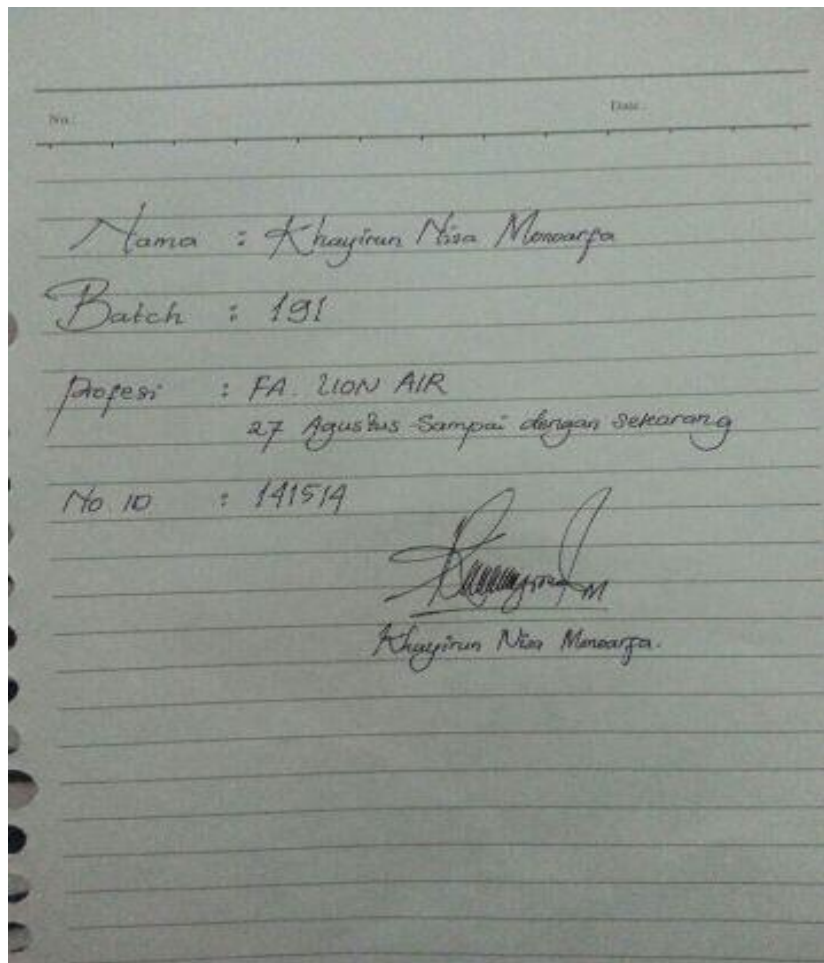 No.: Date:
Nama : Khayirun Nisa Monoarfa
Batch : 191
Profesi : FA. LION AIR
27 Agustus Sampai dengan sekarang
No ID : 141514
Khayirun Nisa Monoarfa.